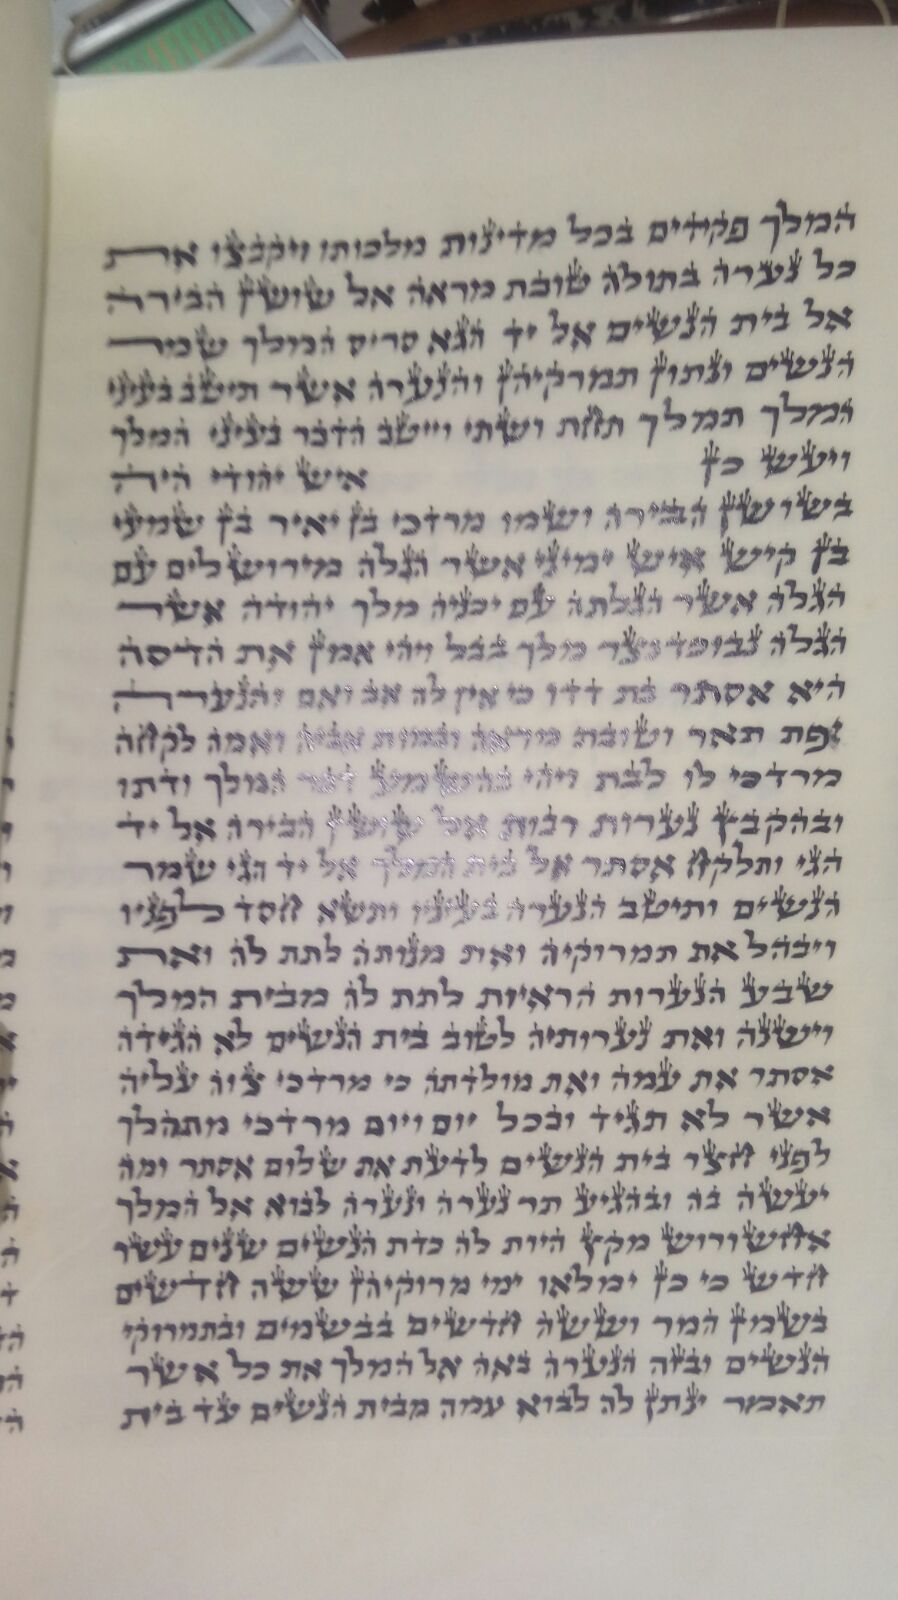 המלך פקידים בכל מדינות מלכותו ויקבצו את
כל נערה בתולה טובת מראה אל שושן הבירה
אל בית הנשים אל יד הגא סריס המלך שמר
הנשים ונתון תמרקיהן והנערה אשר תיטב בעיני
המלך תמלך תחת ושתי וייטב הדבר בעיני המלך
ויעש כן איש יהודי היה
בשושן הבירה ושמו מרדכי בן יאיר בן שמעי
בן קיש איש ימיני אשר הגלה מירושלים עם
הגלה אשר הגלתה עם יכניה מלך יהודה אשר
הגלה נבוכדנאצר מלך בבל ויהי אמן את הדסה
היא אסתר בת דדו כי אין לה אב ואם והנערה
יפת תאר וטובת מראה ובמות אביה ואמה לקחה
מרדכי לו לבת ויהי בהשמע דבר המלך ודתו
ובהקבץ נערות רבות אל שושן הבירה אל יד
הגי ותלקח אסתר אל בית המלך אל יד הגי שמר
הנשים ותיטב הנערה בעיניו ותשא חסד לפניו
ויבהל את תמרוקיה ואת מנותה לתת לה ואת
שבע הנערות הראיות לתת לה מבית המלך
וישנה ואת נערותיה לטוב בית הנשים לא הגידה
אסתר את עמה ואת מולדתה כי מרדכי צוה עליה
אשר לא תגיד ובכל יום ויום מרדכי מתהלך
לפני חצר בית הנשים לדעת את שלום אסתר ומה
יעשה בה ובהגיע תר נערה ונערה לבוא אל המלך
אחשורוש מקץ היות לה כדת הנשים שנים עשר
חדש כי כן ימלאו ימי מרוקיהן ששה חדשים
בשמן המר וששה חדשים בבשמים ובתמרוקי
הנשים ובזה הנערה באה אל המלך את כל אשר
תאמר ינתן לה לבוא עמה מבית הנשים עד בית